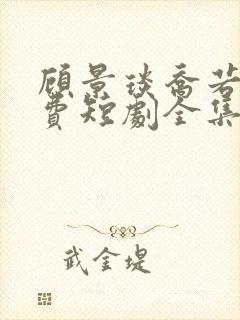 顾景琰乔若
费短剧全集
武金堤